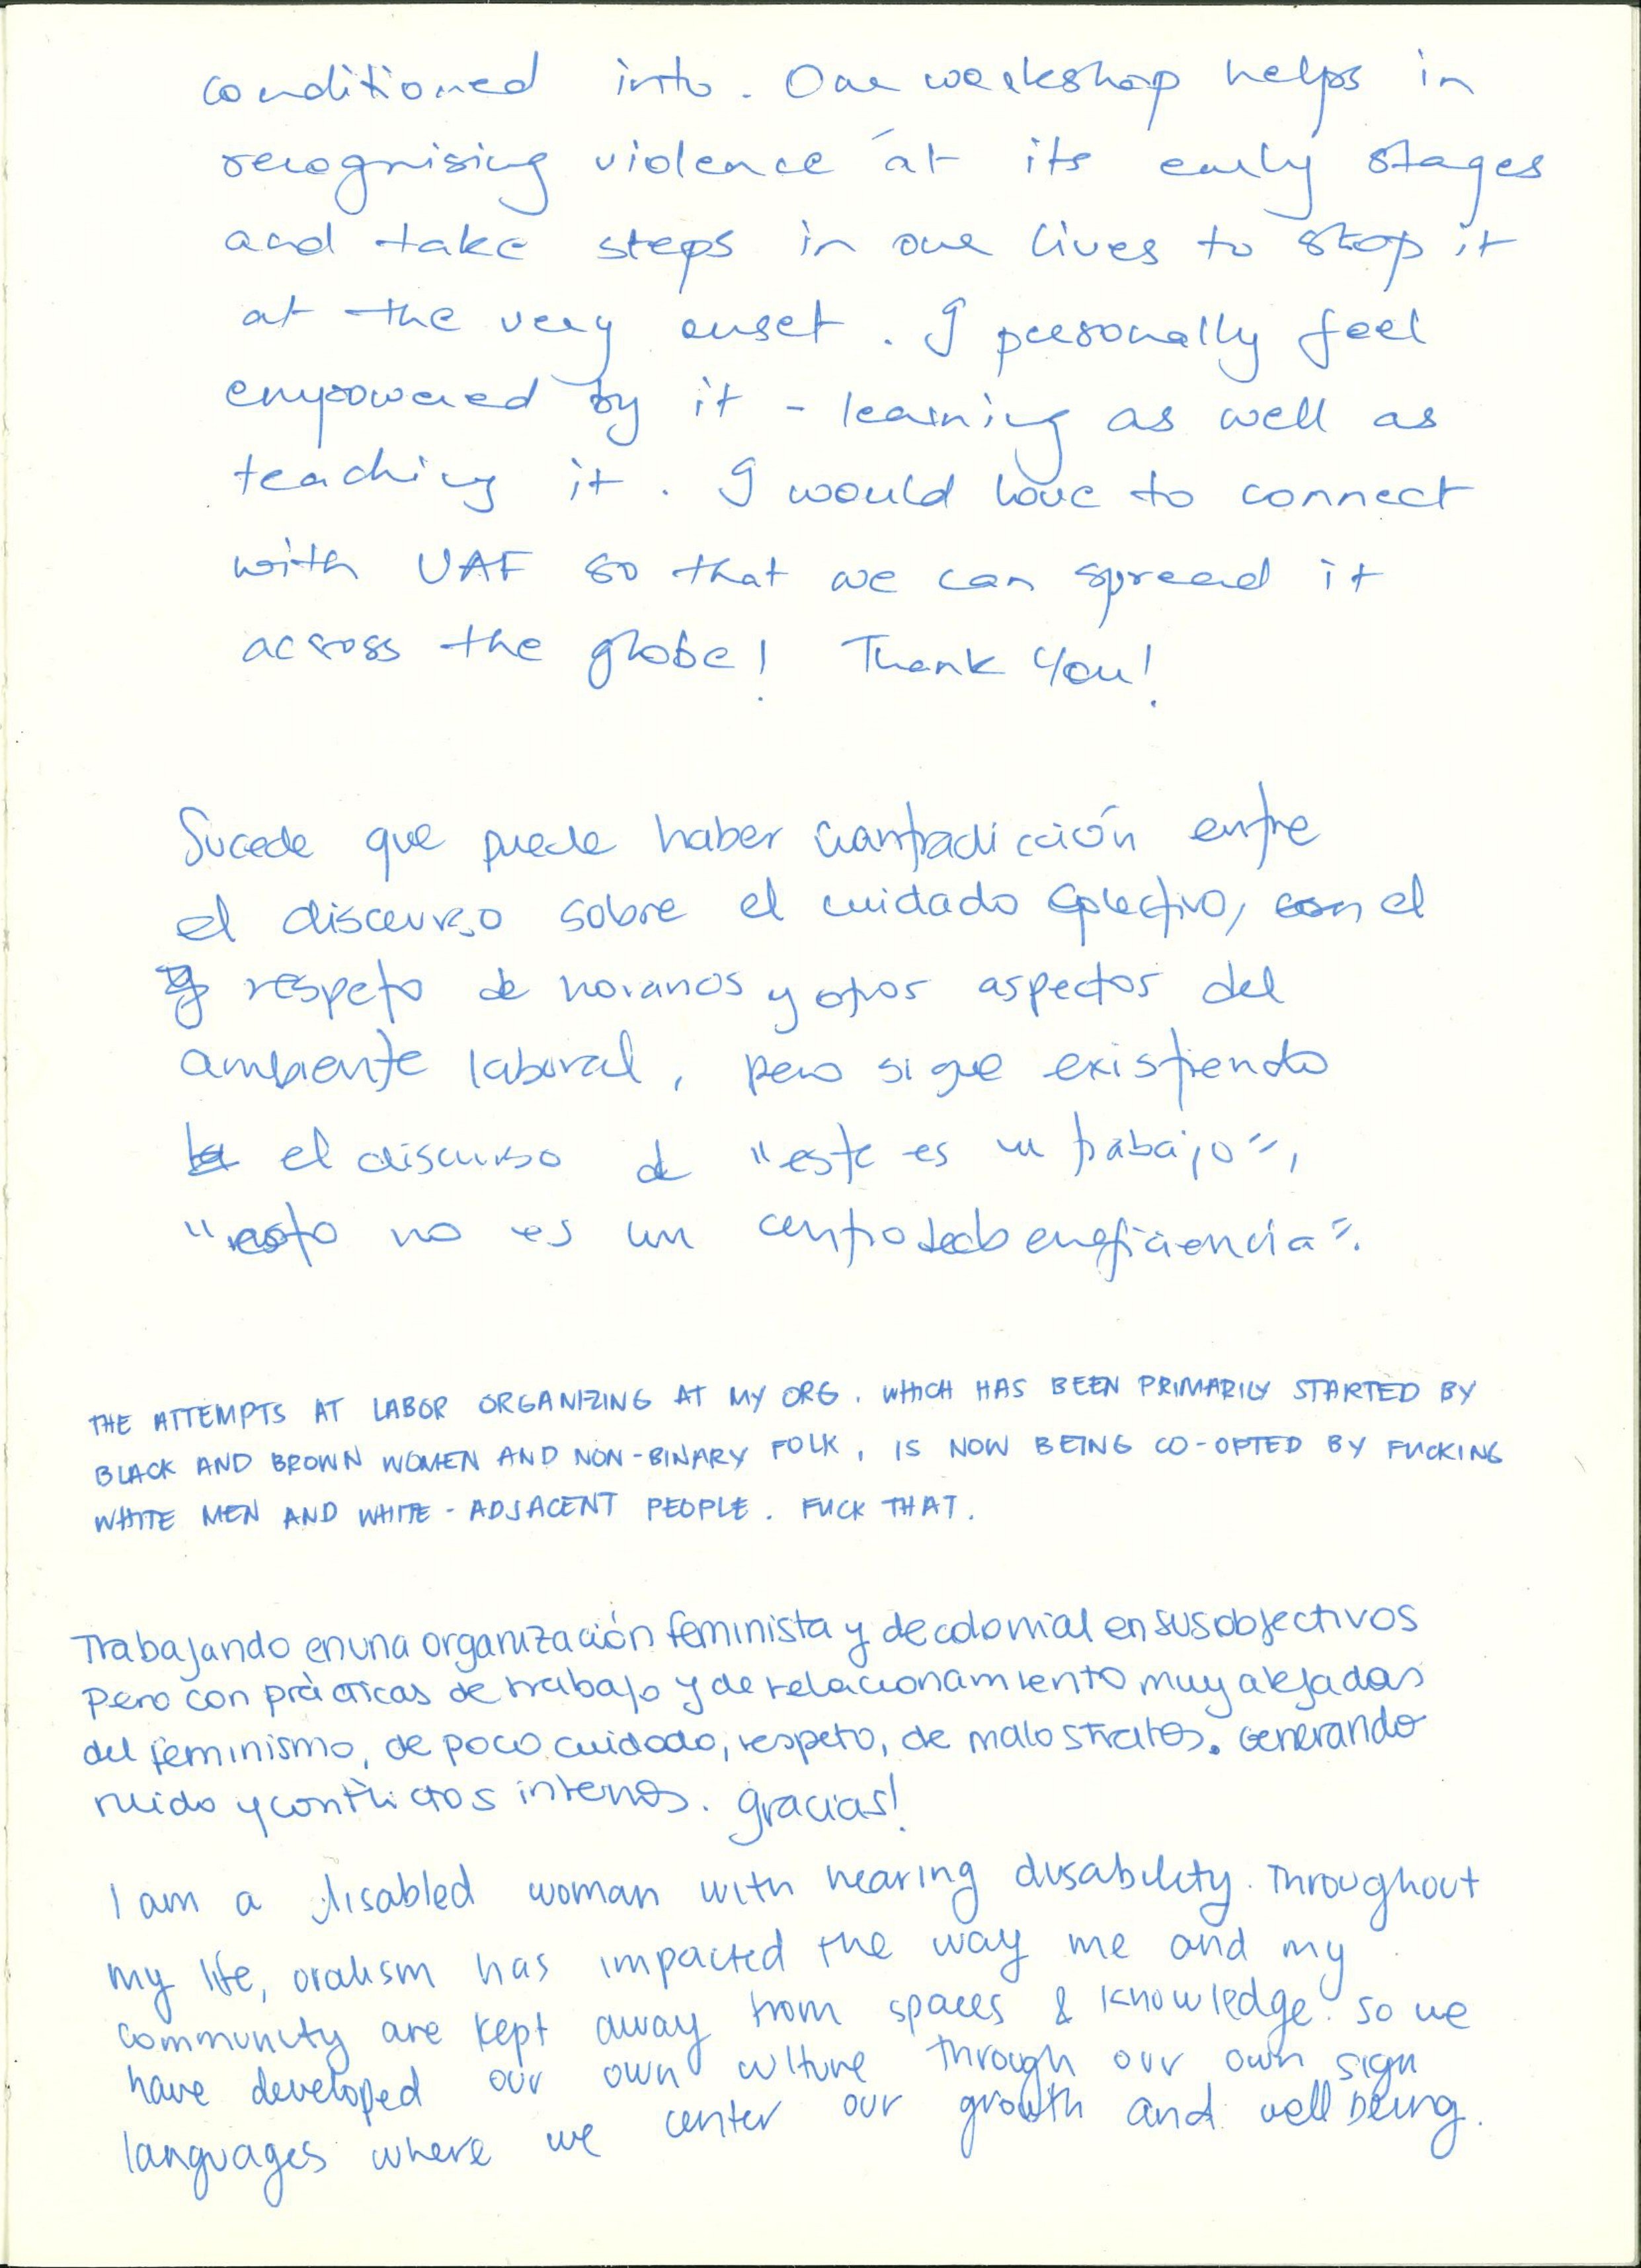 conditioned into. Our workshop helps in
recognising violence at its early stages
and take steps in our lives to stop it
at the very onset. I personally feel
empowered by it - learning as well as
teaching it. I would love to connect
with UAF so that we can spread it
across the globe! Thank You!
Sucede que puede haber contradicción entre
el discurso sobre el cuidado colectivo, con el
respeto de horarios y otros aspectos del
ambiente laboral, pero sigue existiendo
el discurso de "este es un trabajo",
"esto no es un centro de beneficiencia".
THE ATTEMPTS AT LABOR ORGANIZING AT MY ORG. WHICH HAS BEEN PRIMARILY STARTED BY
BLACK AND BROWN WOMEN AND NON-BINARY FOLK, IS NOW BEING CO-OPTED BY FUCKING
WHITE MEN AND WHITE-ADJACENT PEOPLE. FUCK THAT.
Trabajando en una organización feminista y decolonial en sus objectivos
pero con pràcticas de trabajo y de relacionamiento muy alejadas
del feminismo, de poco cuidado, respeto, de malos tratos. Generando
ruido y conflictos internos. gracias!
I am a disabled woman with hearing disability. Throughout
my life, oralism has impacted the way me and my
community are kept away from spaces & knowledge. So we
have developed our own culture through our own sign
languages where we center our growth and well being.